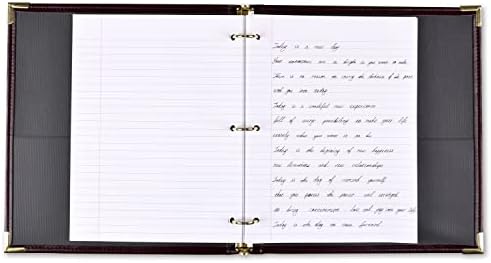 Today is a new day
Your tomorrows are as bright as you want to make
There is no reason to carry the darkness of the past
with you into today
Today is a wonderful new experience
full of every possibility to make your life
exactly what you want it to be
Today is the beginning of new happiness
new directions and new relationships
Today is the day to remind yourself
that you possess the power and strength
to bring contentment love and joy into your life
Today is the day to